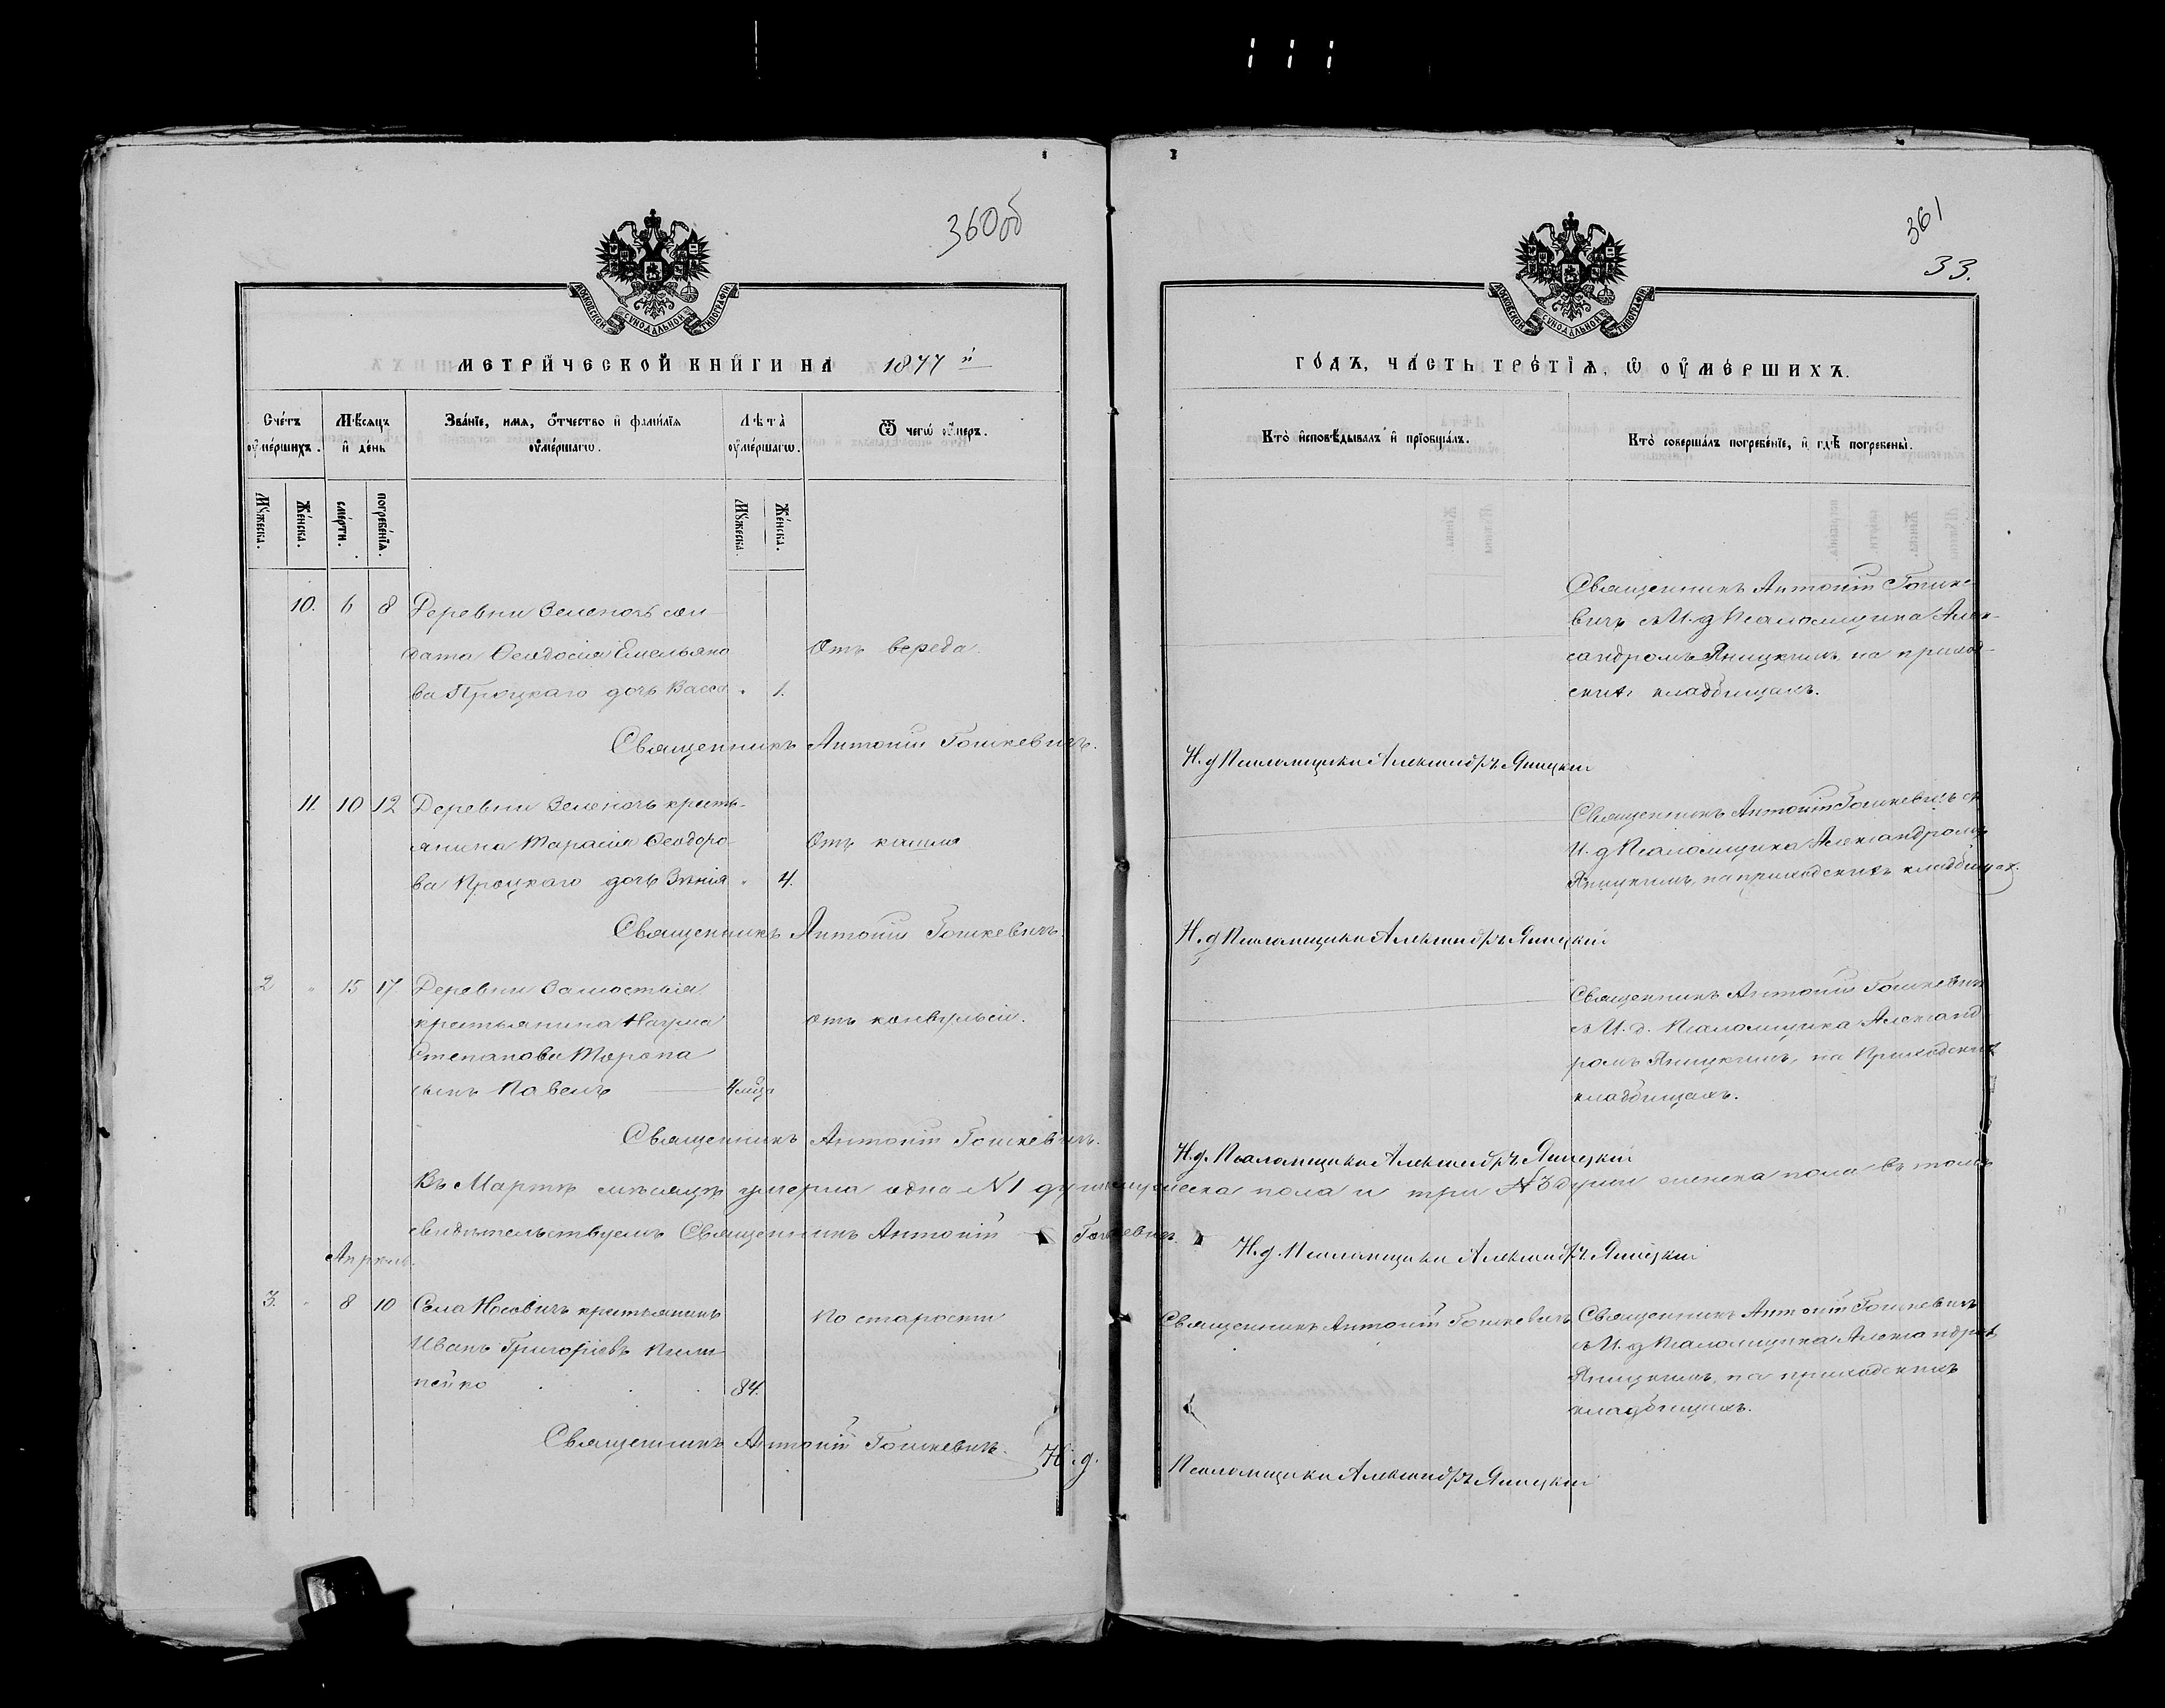 360об
МОСКОВСКОЙ СѴНОДАЛЬНОЙ ТИПОГРАФІИ
МЕТРИЧЕСКОЙ КНИГИ НА 1877 й
Счетъ оумершихъ.
Мѣсяцъ и день
Званіе, имя, отчество и фамилія оумершагѡ.
Лѣта оумершагѡ.
Ѿ чегѡ оумеръ.
Мужеска.
Женска.
смерти.
погребенія.
Мужеска.
Женска.
10. 6 8 Деревни Зеленочъ сол-
дата Ѳеодосія Емельяно
ва Процкаго дочь Васса " 1.
Отъ вереда.
Священникъ Антоній Гошкевичъ.
11. 10 12 Деревни Зеленочъ кресть-
янина Тарасія Ѳеодоро-
ва Процкаго дочь " 4.
Отъ кашля
Священникъ Антоній Гошкевичъ.
2 " 15 17 Деревни Замостья
крестьянина Наума
Степанова
сынъ Павелъ
отъ конвульсіи.
Священникъ Антоній Гошкевичъ.
Въ Мартѣ мѣсяцѣ умерла одна № 1 душа мужеска пола и три № 3 души женска пола въ томъ
свидѣтельствуемъ Священникъ Антоній Гошкевичъ.
Апрель.
3. " 8 10 Села Носовичъ крестьянинъ
Иванъ Григоріевъ
84.
По старости
Священникъ Антоній Гошкевичъ.
И. д.
361
33.
МОСКОВСКОЙ СѴНОДАЛЬНОЙ ТИПОГРАФІИ
ГОДЪ, ЧАСТЬ ТРЕТІЯ, Ѡ ОУМЕРШИХЪ.
Кто исповѣдывалъ и пріобщалъ.
Кто совершалъ погребеніе, и гдѣ погребены.
Священникъ Антоній Гошке-
вичъ съ И. д Псаломщика Алек-
сандромъ Яницкимъ на приход-
скихъ кладбищахъ.
И. д Псаломщика Александръ Яницкій
Священникъ Антоній Гошкевичъ съ
И. д Псаломщика Александромъ
Яницкимъ, на приходскихъ кладбищах.
И. д Псаломщика Александръ Яницкій
Священникъ Антоній Гошкевичъ
съ И. д. Псаломщика Александ
ромъ Яницкимъ, на Приходскихъ
кладбищахъ.
И. д. Псаломщика Александръ Яницкій
И. д. Псаломщика Александръ Яницкій
Священникъ Антоній Гошкевичъ
Священникъ Антоній Гошкевичъ
съ И. д Псаломщика Александромъ
Яницкимъ, на приходскихъ
кладбищахъ.
Псаломщика Александръ Яницкій